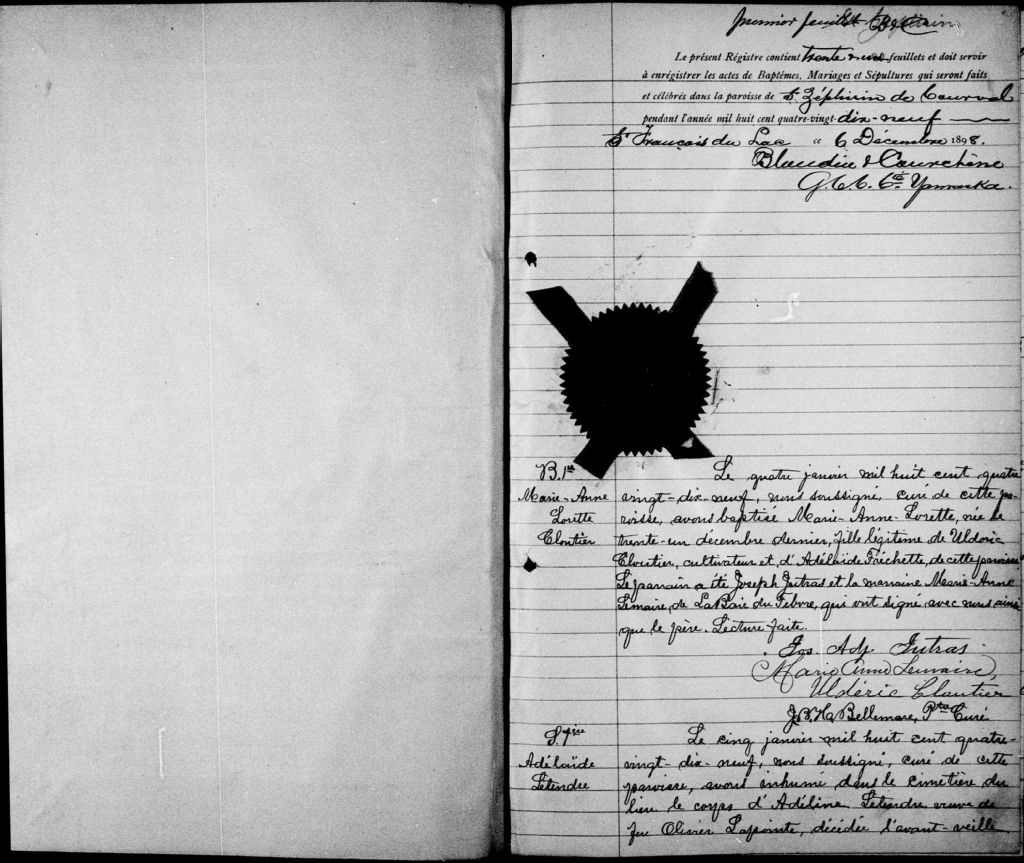 premier feuillet B & C
Le présent Régistre contient trente & un feuillets et doit servir
à enrégistrer les actes de Baptêmes, Mariages et Sépultures qui seront faits
et célébrés dans la paroisse de St Zéphirin de Courval
pendant l'année mil huit cent quatre-vingt-dix-neuf
St François du Lac " 6 Décembre 1898.
Blondin & Courchêne
G.C.C. Yamaska.
B. 1re
Marie-Anne
Lorette
Cloutier
Le quatre janvier mil huit cent quatre
vingt-dix-neuf, nous soussigné, curé de cette pa-
roisse, avons baptisé Marie-Anne-Lorette, née le
trente-un décembre dernier, fille légitime de Uldoric
Cloutier, cultivateur et d'Adélaïde Fréchette, de cette paroisse
Le parrain a été Joseph Jutras et la marraine Marie-Anne
Lemaire, de LaBaie du Febvre, qui ont signé avec nous ainsi
que le père. Lecture faite.
Jos. Adp. Jutras
Marie Anne Lemaire,
Uldéric Cloutier
J.B.H. Bellemare, Ptre Curé
S. 1ère
Adélaïde
Letendre
Le cinq janvier mil huit cent quatre-
vingt-dix-neuf, nous soussigné, curé de cette
paroisse, avons inhumé dans le cimetière du
lieu le corps d'Adéline Letendre veuve de
feu Olivier Lapointe, décédée l'avant-veille